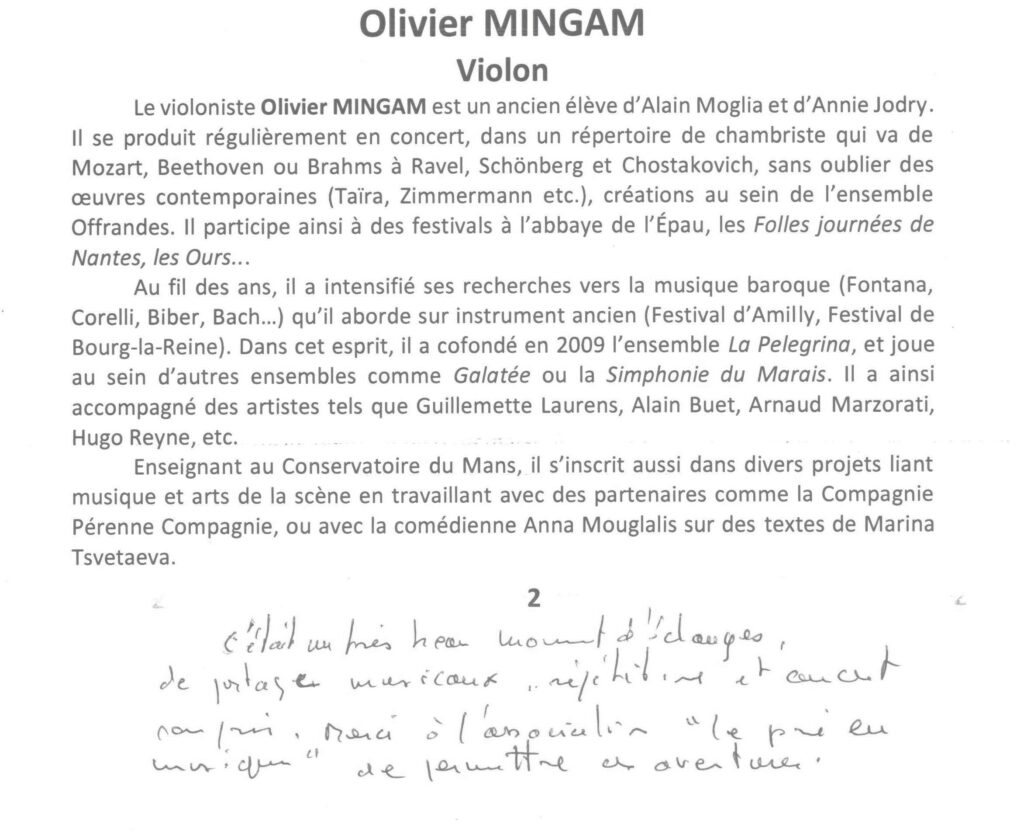 Olivier MINGAM
Violon
Le violoniste Olivier MINGAM est un ancien élève d’Alain Moglia et d’Annie Jodry.
Il se produit régulièrement en concert, dans un répertoire de chambriste qui va de
Mozart, Beethoven ou Brahms à Ravel, Schönberg et Chostakovich, sans oublier des
œuvres contemporaines (Taïra, Zimmermann etc.), créations au sein de l’ensemble
Offrandes. Il participe ainsi à des festivals à l’abbaye de l’Épau, les Folles journées de
Nantes, les Ours...
Au fil des ans, il a intensifié ses recherches vers la musique baroque (Fontana,
Corelli, Biber, Bach…) qu’il aborde sur instrument ancien (Festival d’Amilly, Festival de
Bourg-la-Reine). Dans cet esprit, il a cofondé en 2009 l’ensemble La Pelegrina, et joue
au sein d’autres ensembles comme Galatée ou la Simphonie du Marais. Il a ainsi
accompagné des artistes tels que Guillemette Laurens, Alain Buet, Arnaud Marzorati,
Hugo Reyne, etc.
Enseignant au Conservatoire du Mans, il s’inscrit aussi dans divers projets liant
musique et arts de la scène en travaillant avec des partenaires comme la Compagnie
Pérenne Compagnie, ou avec la comédienne Anna Mouglalis sur des textes de Marina
Tsvetaeva.
2
C'était un très beau moment d'échanges,
de partages musicaux, répétitions et concert
compris. Merci à l'association "le pré en
musique" de permettre ces aventures.